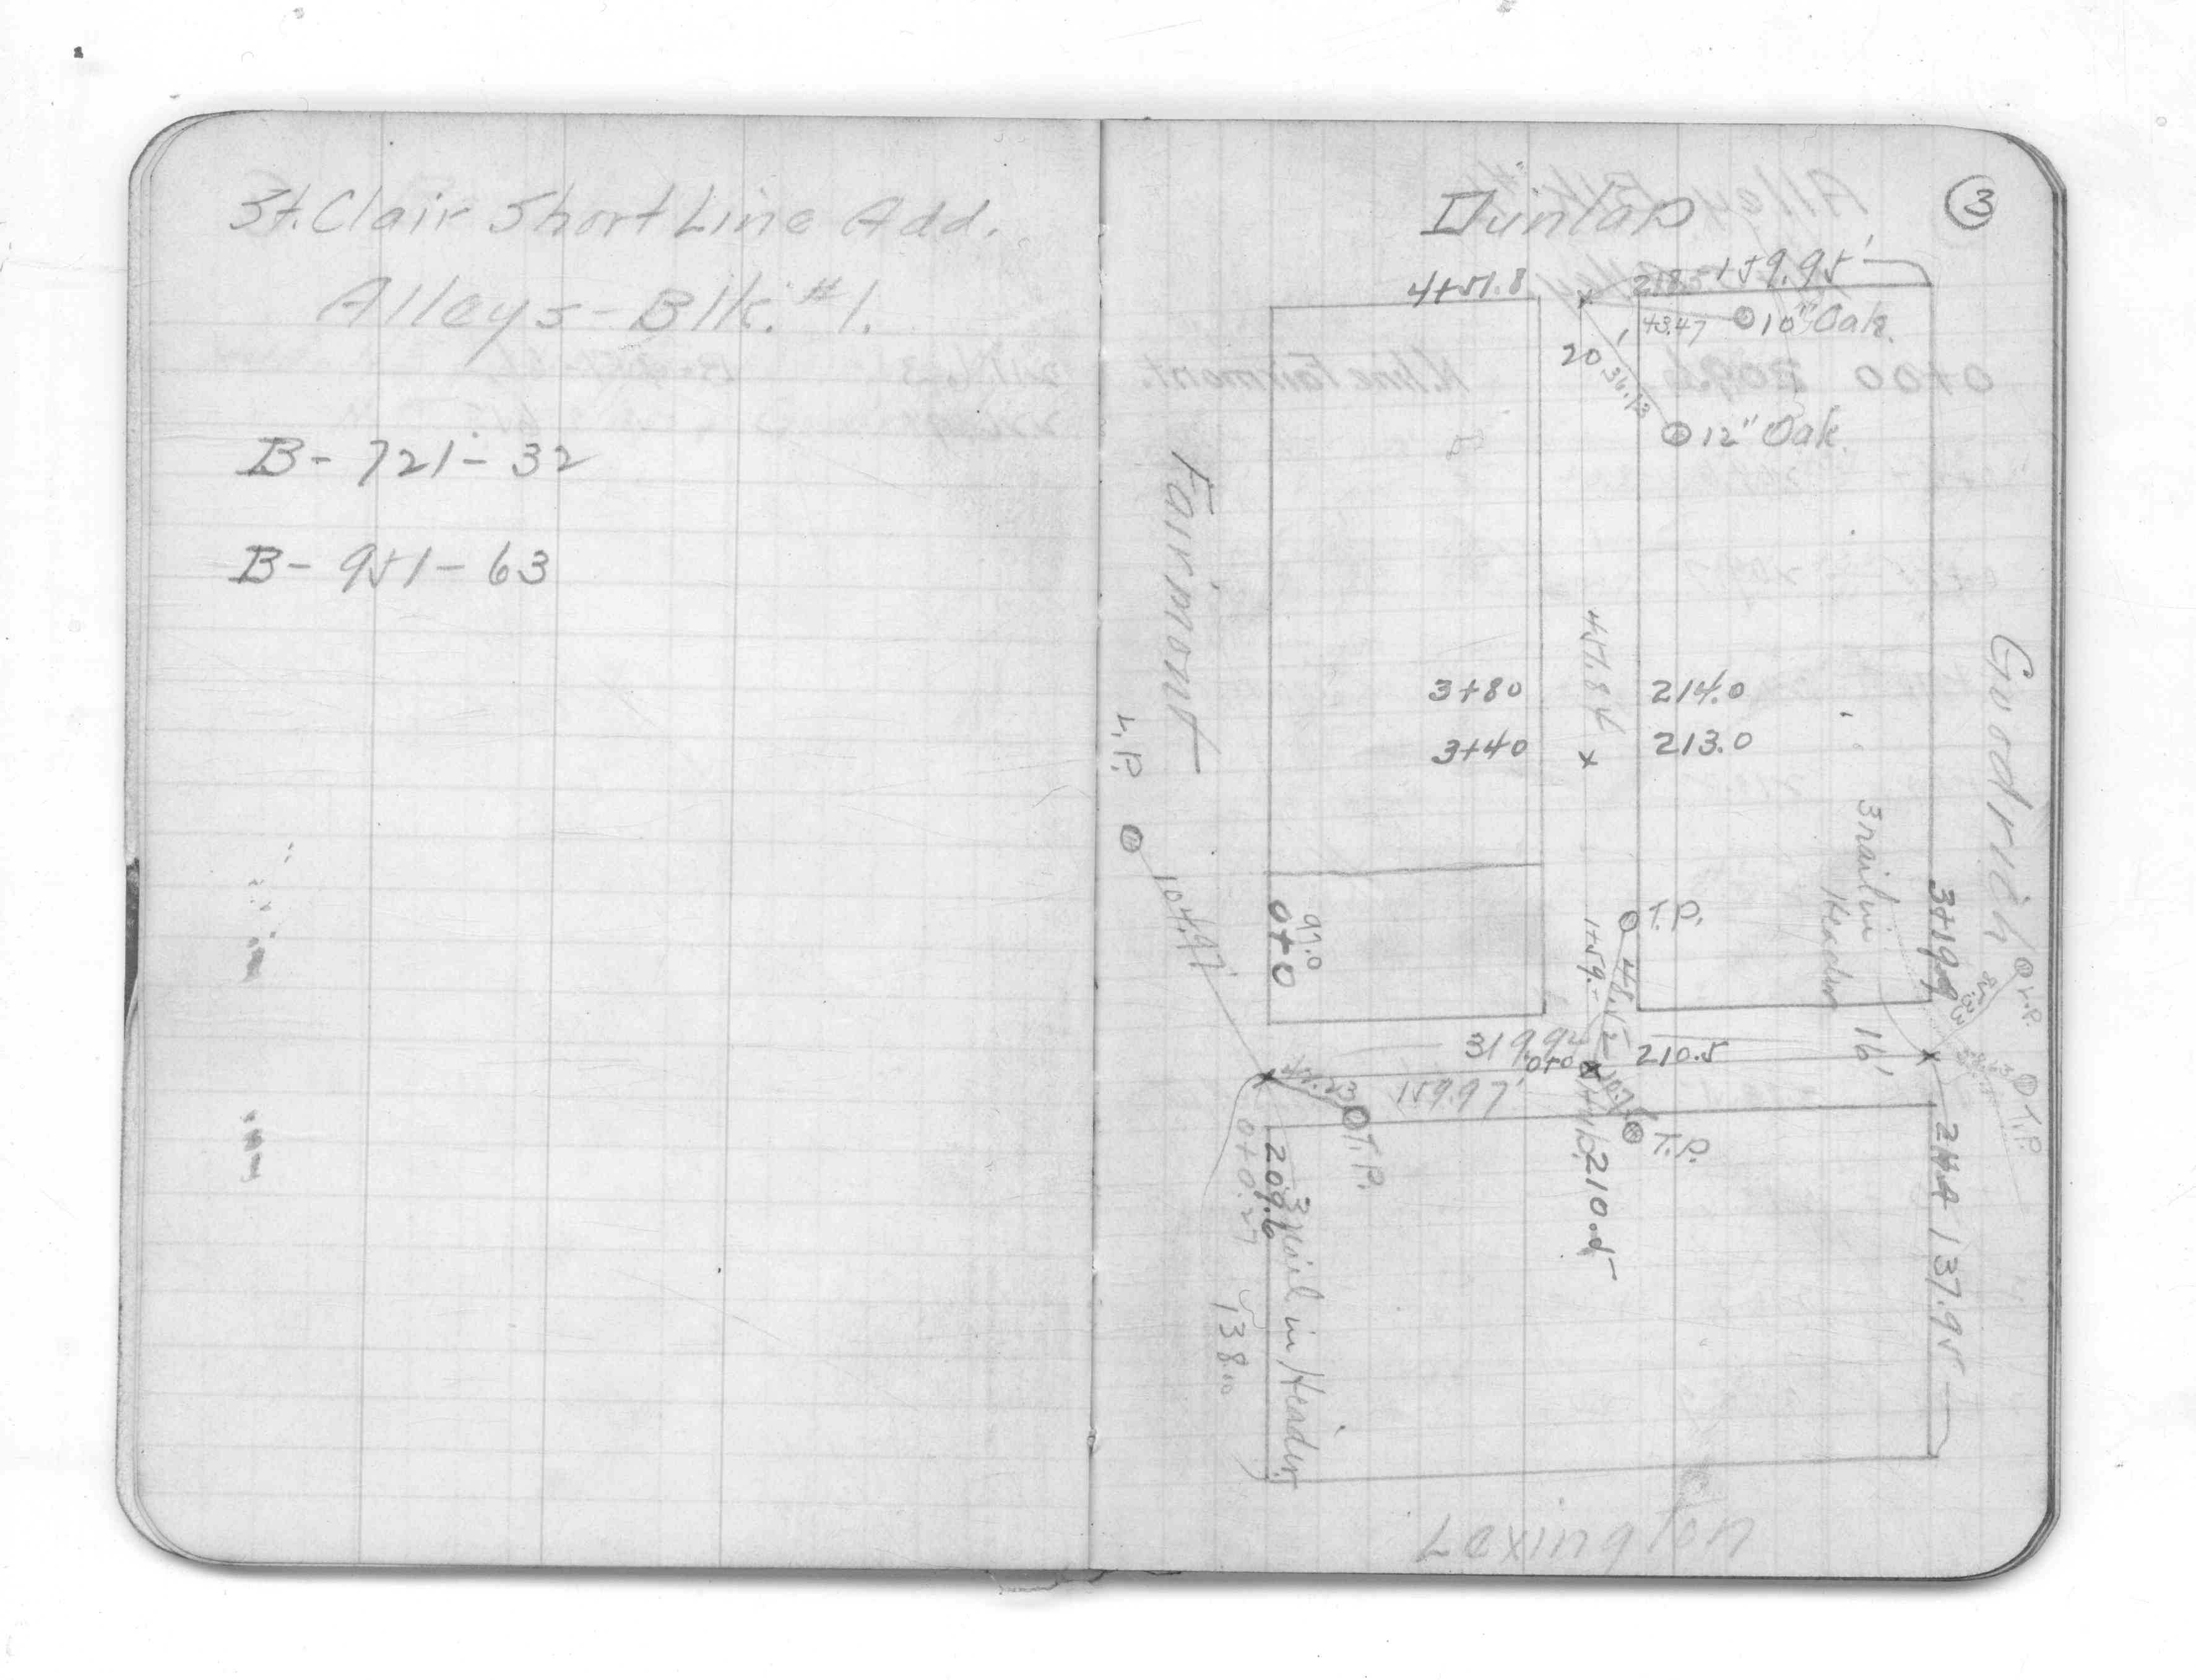 St. Clair Short Line Add.
Alleys - Blk. #1.
B - 721 - 32
B - 951 - 63
3
Dunlap
4+51.8
218.5
159.95'
43.47
10" Oak.
20'
36.13
12" Oak.
Fairmont
Goodrich
451.84
3+80
214.0
3+40
213.0
T.P.
104.97
3 nail in
Header
0+0
97.0
T.P.
1+59.-
48.52
3+19.9
T.P.
16'
319.92
0+0
210.5
47.23
159.97'
T.P.
Hub.
T.P.
T.P.
210.5
0+0.27
209.6
3 nail in Header
138.00
137.95
Lexington